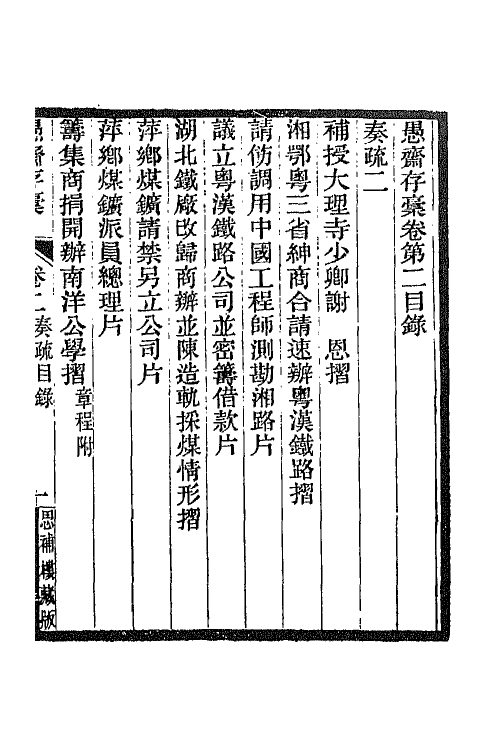 愚齋存稾卷第二目錄
奏疏二
補授大理寺少卿謝　恩摺
湘鄂粵三省紳商合請速辦粵漢鐵路摺
請飭調用中國工程師測勘湘路片
議立粵漢鐵路公司並密籌借款片
湖北鐵廠改歸商辦並陳造軌採煤情形摺
萍鄉煤鑛請禁另立公司片
萍鄉煤鑛派員總理片
籌集商捐開辦南洋公學摺 章程附
愚齋存稾 卷二 奏疏目錄 一 思補樓藏版